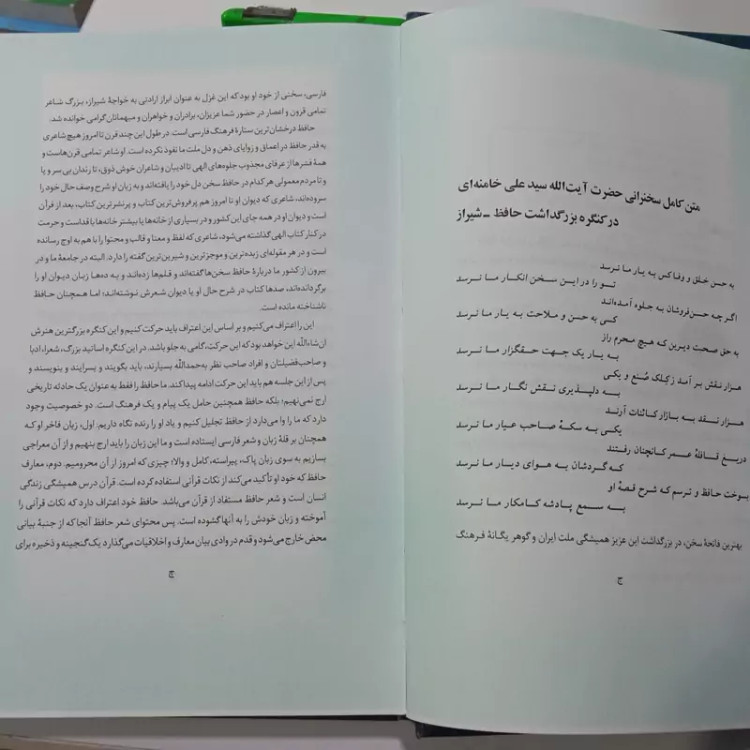 متن کامل سخنرانی حضرت آیت‌الله سید علی خامنه‌ای
در کنگره بزرگداشت حافظ ـ شیراز
به حسن خلق و وفا کس به یار ما نرسد
تو را در این سخن انکار ما نرسد
اگر چه حسن‌فروشان به جلوه آمده‌اند
کسی به حسن و ملاحت به یار ما نرسد
به حق صحبت دیرین که هیچ محرم راز
به یار یک جهت حقگزار ما نرسد
هزار نقش بر آمد ز کلک صُنع و یکی
به دلپذیری نقش نگار ما نرسد
هزار نقد به بازار کائنات آرند
یکی به سکهٔ صاحب عیار ما نرسد
دریغ قافلهٔ عمر کانچنان رفتند
که گردشان به هوای دیار ما نرسد
بسوخت حافظ و ترسم که شرح قصهٔ او
به سمع پادشه کامکار ما نرسد
بهترین فاتحهٔ سخن، در بزرگداشت این عزیز همیشگی ملت ایران و گوهر یگانهٔ فرهنگ
ج
فارسی، سخنی از خود او بود که این غزل به عنوان ابراز ارادتی به خواجهٔ شیراز، بزرگ شاعر
تمامی قرون و اعصار در حضور شما عزیزان، برادران و خواهران و میهمانان گرامی خوانده شد.
حافظ درخشان‌ترین ستارهٔ فرهنگ فارسی است. در طول این چند قرن تا امروز هیچ شاعری
به قدر حافظ در اعماق و زوایای ذهن و دل ملت ما نفوذ نکرده است. او شاعر تمامی قرن‌هاست و
همهٔ قشرها از عرفای مجذوب جلوه‌های الهی تا ادیبان و شاعران خوش ذوق، تا رندان بی سر و پا
و تا مردم معمولی هر کدام در حافظ سخن دل خود را یافته‌اند و به زبان او شرح وصف حال خود را
سروده‌اند، شاعری که دیوان او تا امروز هم پرفروش‌ترین کتاب و پرنشرترین کتاب، بعد از قرآن
است و دیوان او در همه جای این کشور و در بسیاری از خانه‌ها یا بیشتر خانه‌ها با قداست و حرمت
در کنار کتاب الهی گذاشته می‌شود، شاعری که لفظ و معنا و قالب و محتوا را با هم به اوج رسانده
و در هر مقوله‌ای زبده‌ترین و موجزترین و شیرین‌ترین گفته را دارد. البته در جامعهٔ ما و در
بیرون از کشور ما دربارهٔ حافظ سخن‌ها گفته‌اند و قلم‌ها زده‌اند و به ده‌ها زبان دیوان او را
برگردانده‌اند، صدها کتاب در شرح حال او یا دیوان شعرش نوشته‌اند؛ اما همچنان حافظ
ناشناخته مانده است.
این را اعتراف می‌کنیم و بر اساس این اعتراف باید حرکت کنیم و این کنگره بزرگترین هنرش
ان‌شاءاللّه این خواهد بود که این حرکت، گامی به جلو باشد. در این کنگره اساتید بزرگ، شعرا، ادبا
و صاحب‌فضیلتان و افراد صاحب نظر بحمداللّه بسیارند، باید بگویند و بسرایند و بنویسند و
پس از این جلسه هم باید این حرکت ادامه پیدا کند. ما حافظ را فقط به عنوان یک حادثه تاریخی
ارج نمی‌نهیم؛ بلکه حافظ همچنین حامل یک پیام و یک فرهنگ است. دو خصوصیت وجود
دارد که ما را وا می‌دارد از حافظ تجلیل کنیم و یاد او را زنده نگاه داریم. اول، زبان فاخر او که
همچنان بر قلهٔ زبان و شعر فارسی ایستاده است و ما این زبان را باید ارج بنهیم و از آن معراجی
بسازیم به سوی زبان پاک، پیراسته، کامل و والا؛ چیزی که امروز از آن محرومیم. دوم، معارف
حافظ که خود او تأکید می‌کند از نکات قرآنی استفاده کرده است. قرآن درس همیشگی زندگی
انسان است و شعر حافظ مستفاد از قرآن می‌باشد. حافظ خود اعتراف دارد که نکات قرآنی را
آموخته و زبان خودش را به آنها گشوده است. پس محتوای شعر حافظ آنجا که از جنبهٔ بیانی
محض خارج می‌شود و قدم در وادی بیان معارف و اخلاقیات می‌گذارد یک گنجینه و ذخیره برای
چ